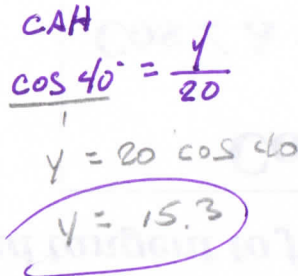 CAH
cos 40° = y/20
y = 20 cos 40
y = 15.3